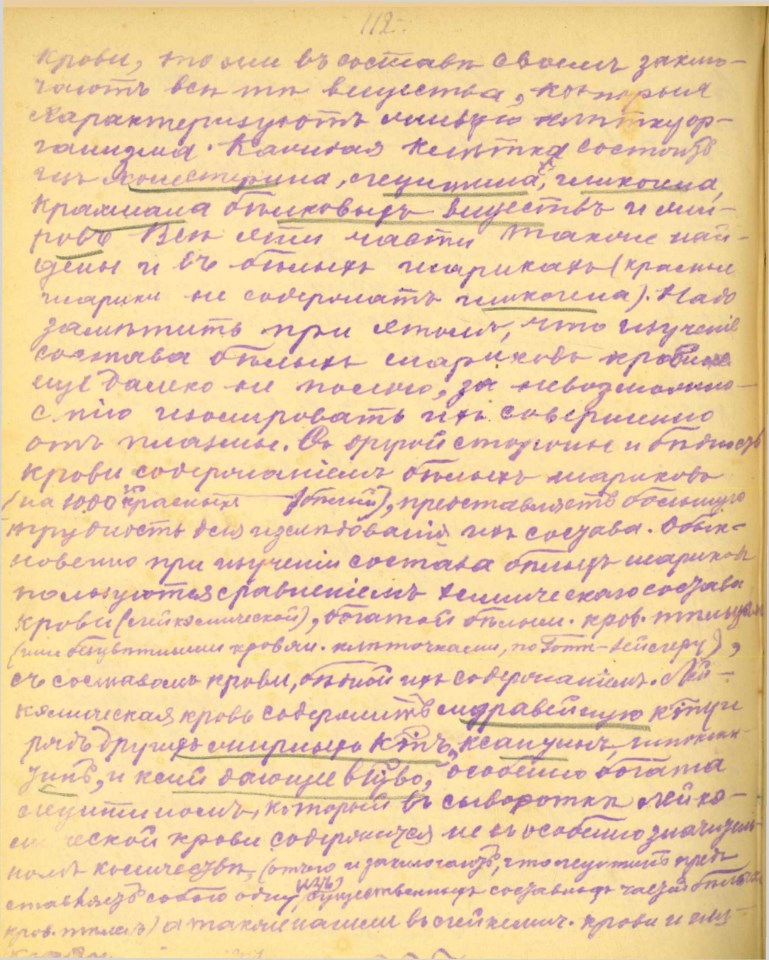 112.
крови, то они въ составѣ своемъ заклю-
чаютъ всѣ тѣ вещества, которыя
характеризуютъ живую клѣтку ор-
ганизма. Каждая клѣтка состоитъ
изъ холестерина, лецитина, гликогена,
крахмала бѣлковыхъ веществъ и жи-
ровъ Всѣ эти части также най-
дены и въ бѣлыхъ шарикахъ (красные
шарики не содержатъ гликогена). Надо
замѣтить при этомъ, что изученіе
состава бѣлыхъ шариковъ крови
еще далеко не полное, за невозможно-
стію изолировать ихъ совершенно
отъ плазмы. Съ другой стороны и бѣдность
крови содержаніемъ бѣлыхъ шариковъ
(на 1000 красныхъ 1 бѣлый), представляетъ большую
трудность для изслѣдованія ихъ состава. Обык-
новенно при изученіи состава бѣлыхъ шариковъ
пользуются сравненіемъ химическаго состава
крови (лейкемической), богатой бѣлыми кров. тѣльцами
(или безцвѣтными кровян. клѣточками, по Гоппе-Зейлеру),
съ составомъ крови, бѣдной ихъ содержаніемъ. Лей-
кемическая кровь содержитъ муравейную к-ту и
рядъ другихъ жирныхъ к-тъ, ксантинъ, гипоксан-
тинъ, и клей дающее в-тво, особенно богата
лецитиномъ, который въ сывороткѣ лейке-
мической крови содержится не въ особенно значитель-
номъ количествѣ, (отчего и заключаютъ, что лецитинъ пред-
ставляетъ собою одну изъ существенныхъ составныхъ частей бѣлыхъ
кров. тѣлецъ) а также нашли въ лейкемич. крови и гли-